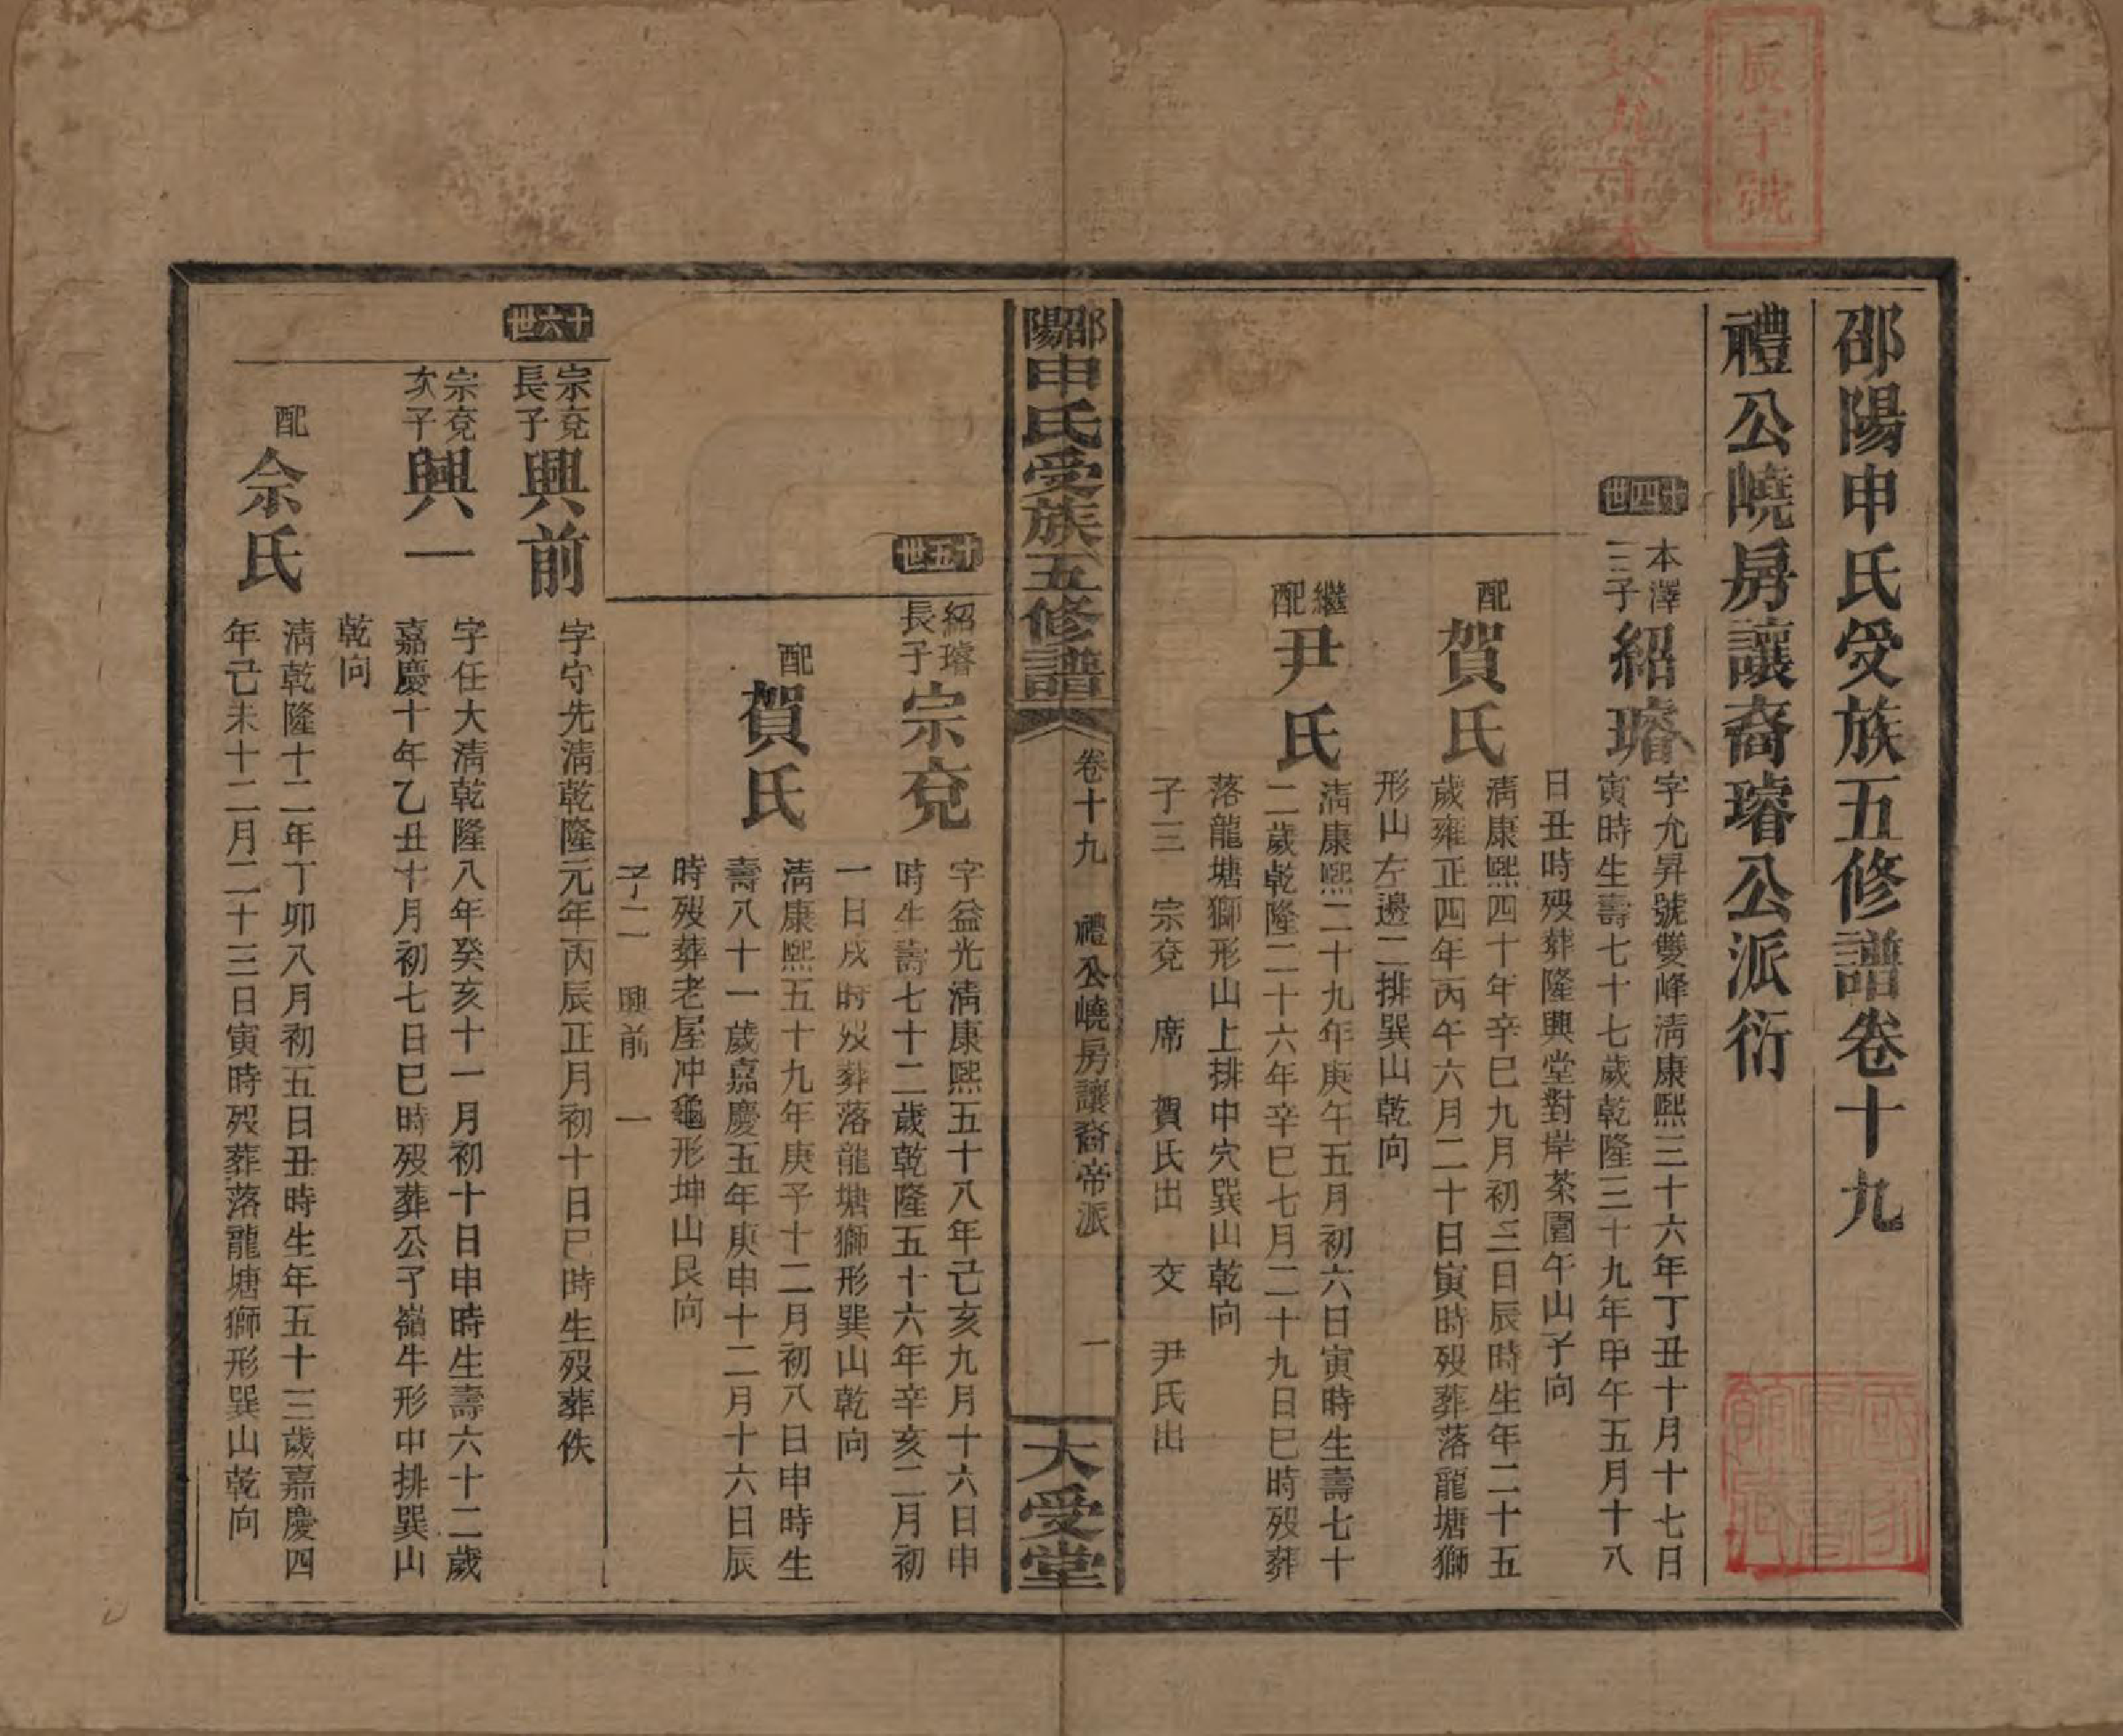 辰字號
邵陽申氏受族五修譜卷十九
禮公嶢房讓裔璿公派衍
十四世
本澤
三子
紹璿
字允昇號雙峰淸康熙三十六年丁丑十月十七日
寅時生壽七十七歲乾隆三十九年甲午五月十八
日丑時歿葬隆興堂對岸茶園午山子向
配
賀氏
淸康熙四十年辛巳九月初三日辰時生年二十五
歲雍正四年丙午六月二十日寅時歿葬落龍塘獅
形山左邊二排巽山乾向
繼
配
尹氏
淸康熙二十九年庚午五月初六日寅時生壽七十
二歲乾隆二十六年辛巳七月二十九日巳時歿葬
落龍塘獅形山上排中穴巽山乾向
子三 宗兗 席 賀氏出 交 尹氏出
邵陽申氏受族五修譜 卷十九 禮公嶢房讓裔帝派 一 大受堂
十五世
紹璿
長子
宗兗
字益光淸康熙五十八年己亥九月十六日申
時生壽七十二歲乾隆五十六年辛亥二月初
一日戌時歿葬落龍塘獅形巽山乾向
配
賀氏
淸康熙五十九年庚子十二月初八日申時生
壽八十一歲嘉慶五年庚申十二月十六日辰
時歿葬老屋冲龜形坤山艮向
子二 興前 一
十六世
宗兗
長子
興前
字守先淸乾隆元年丙辰正月初十日巳時生歿葬佚
宗兗
次子
興一
字任大淸乾隆八年癸亥十一月初十日申時生壽六十二歲
嘉慶十年乙丑十月初七日巳時歿葬公子嶺牛形中排巽山
乾向
配
佘氏
淸乾隆十二年丁卯八月初五日丑時生年五十三歲嘉慶四
年己未十二月二十三日寅時歿葬落龍塘獅形巽山乾向